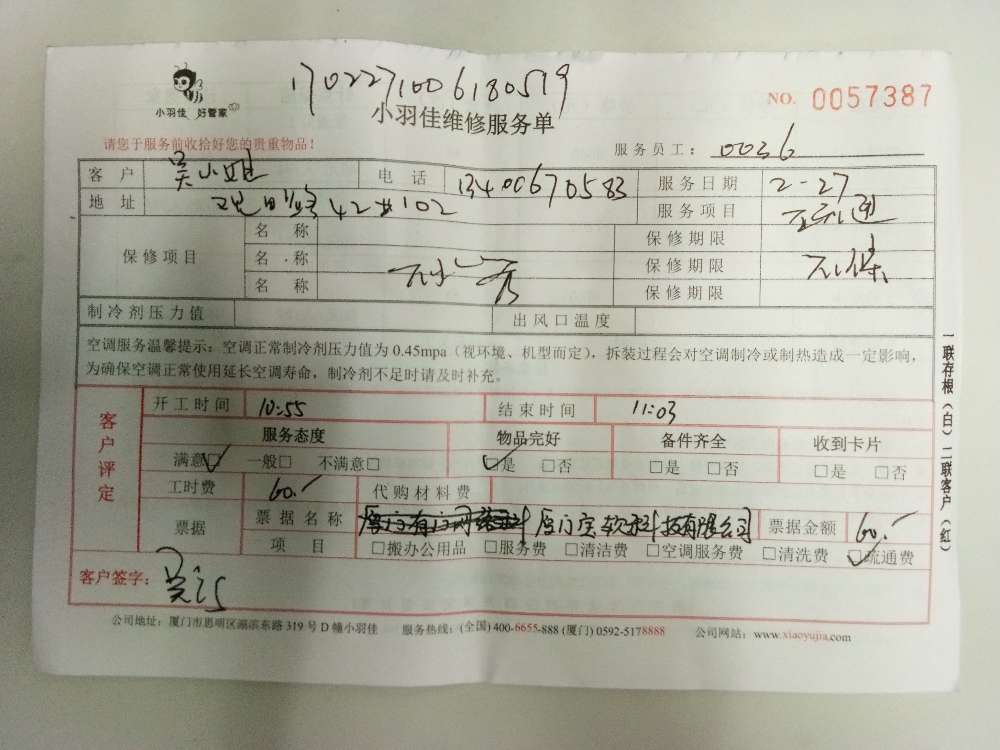 1702271006180519
小羽佳 好管家
小羽佳维修服务单
NO. 0057387
请您于服务前收拾好您的贵重物品!
服务员工: 0036
客户 吴小姐 电话 13400670583 服务日期 2-27
地址 观日路42#102 服务项目
保修项目
名称 保修期限
名称 保修期限 不保
名称 保修期限
制冷剂压力值 出风口温度
空调服务温馨提示:空调正常制冷剂压力值为0.45mpa(视环境、机型而定),拆装过程会对空调制冷或制热造成一定影响,
为确保空调正常使用延长空调寿命,制冷剂不足时请及时补充。
客户评定
开工时间 10:55 结束时间 11:03
服务态度 物品完好 备件齐全 收到卡片
满意☑ 一般□ 不满意□ ☑是 □否 □是 □否 □是 □否
工时费 60.- 代购材料费
票据 票据名称 厦门宾软科技有限公司 票据金额 60.-
项目 □搬办公用品 □服务费 □清洁费 □空调服务费 □清洗费 ☑疏通费
客户签字:
公司地址:厦门市思明区湖滨东路319号D幢小羽佳 服务热线:(全国)400-6655-888 (厦门) 0592-5178888 公司网站:www.xiaoyujia.com
一联存根(白)二联客户(红)